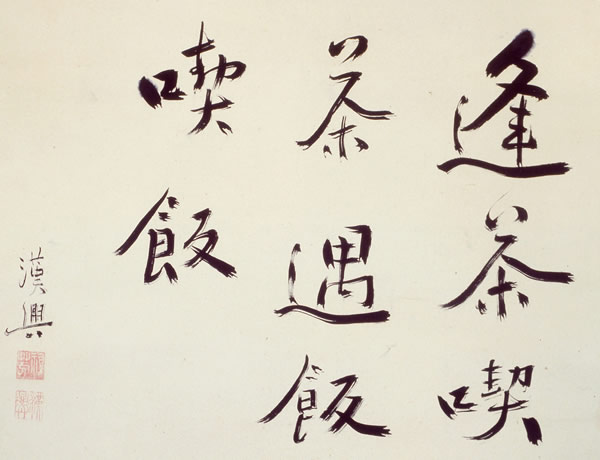 逢茶喫
茶遇飯
喫飯
漢興